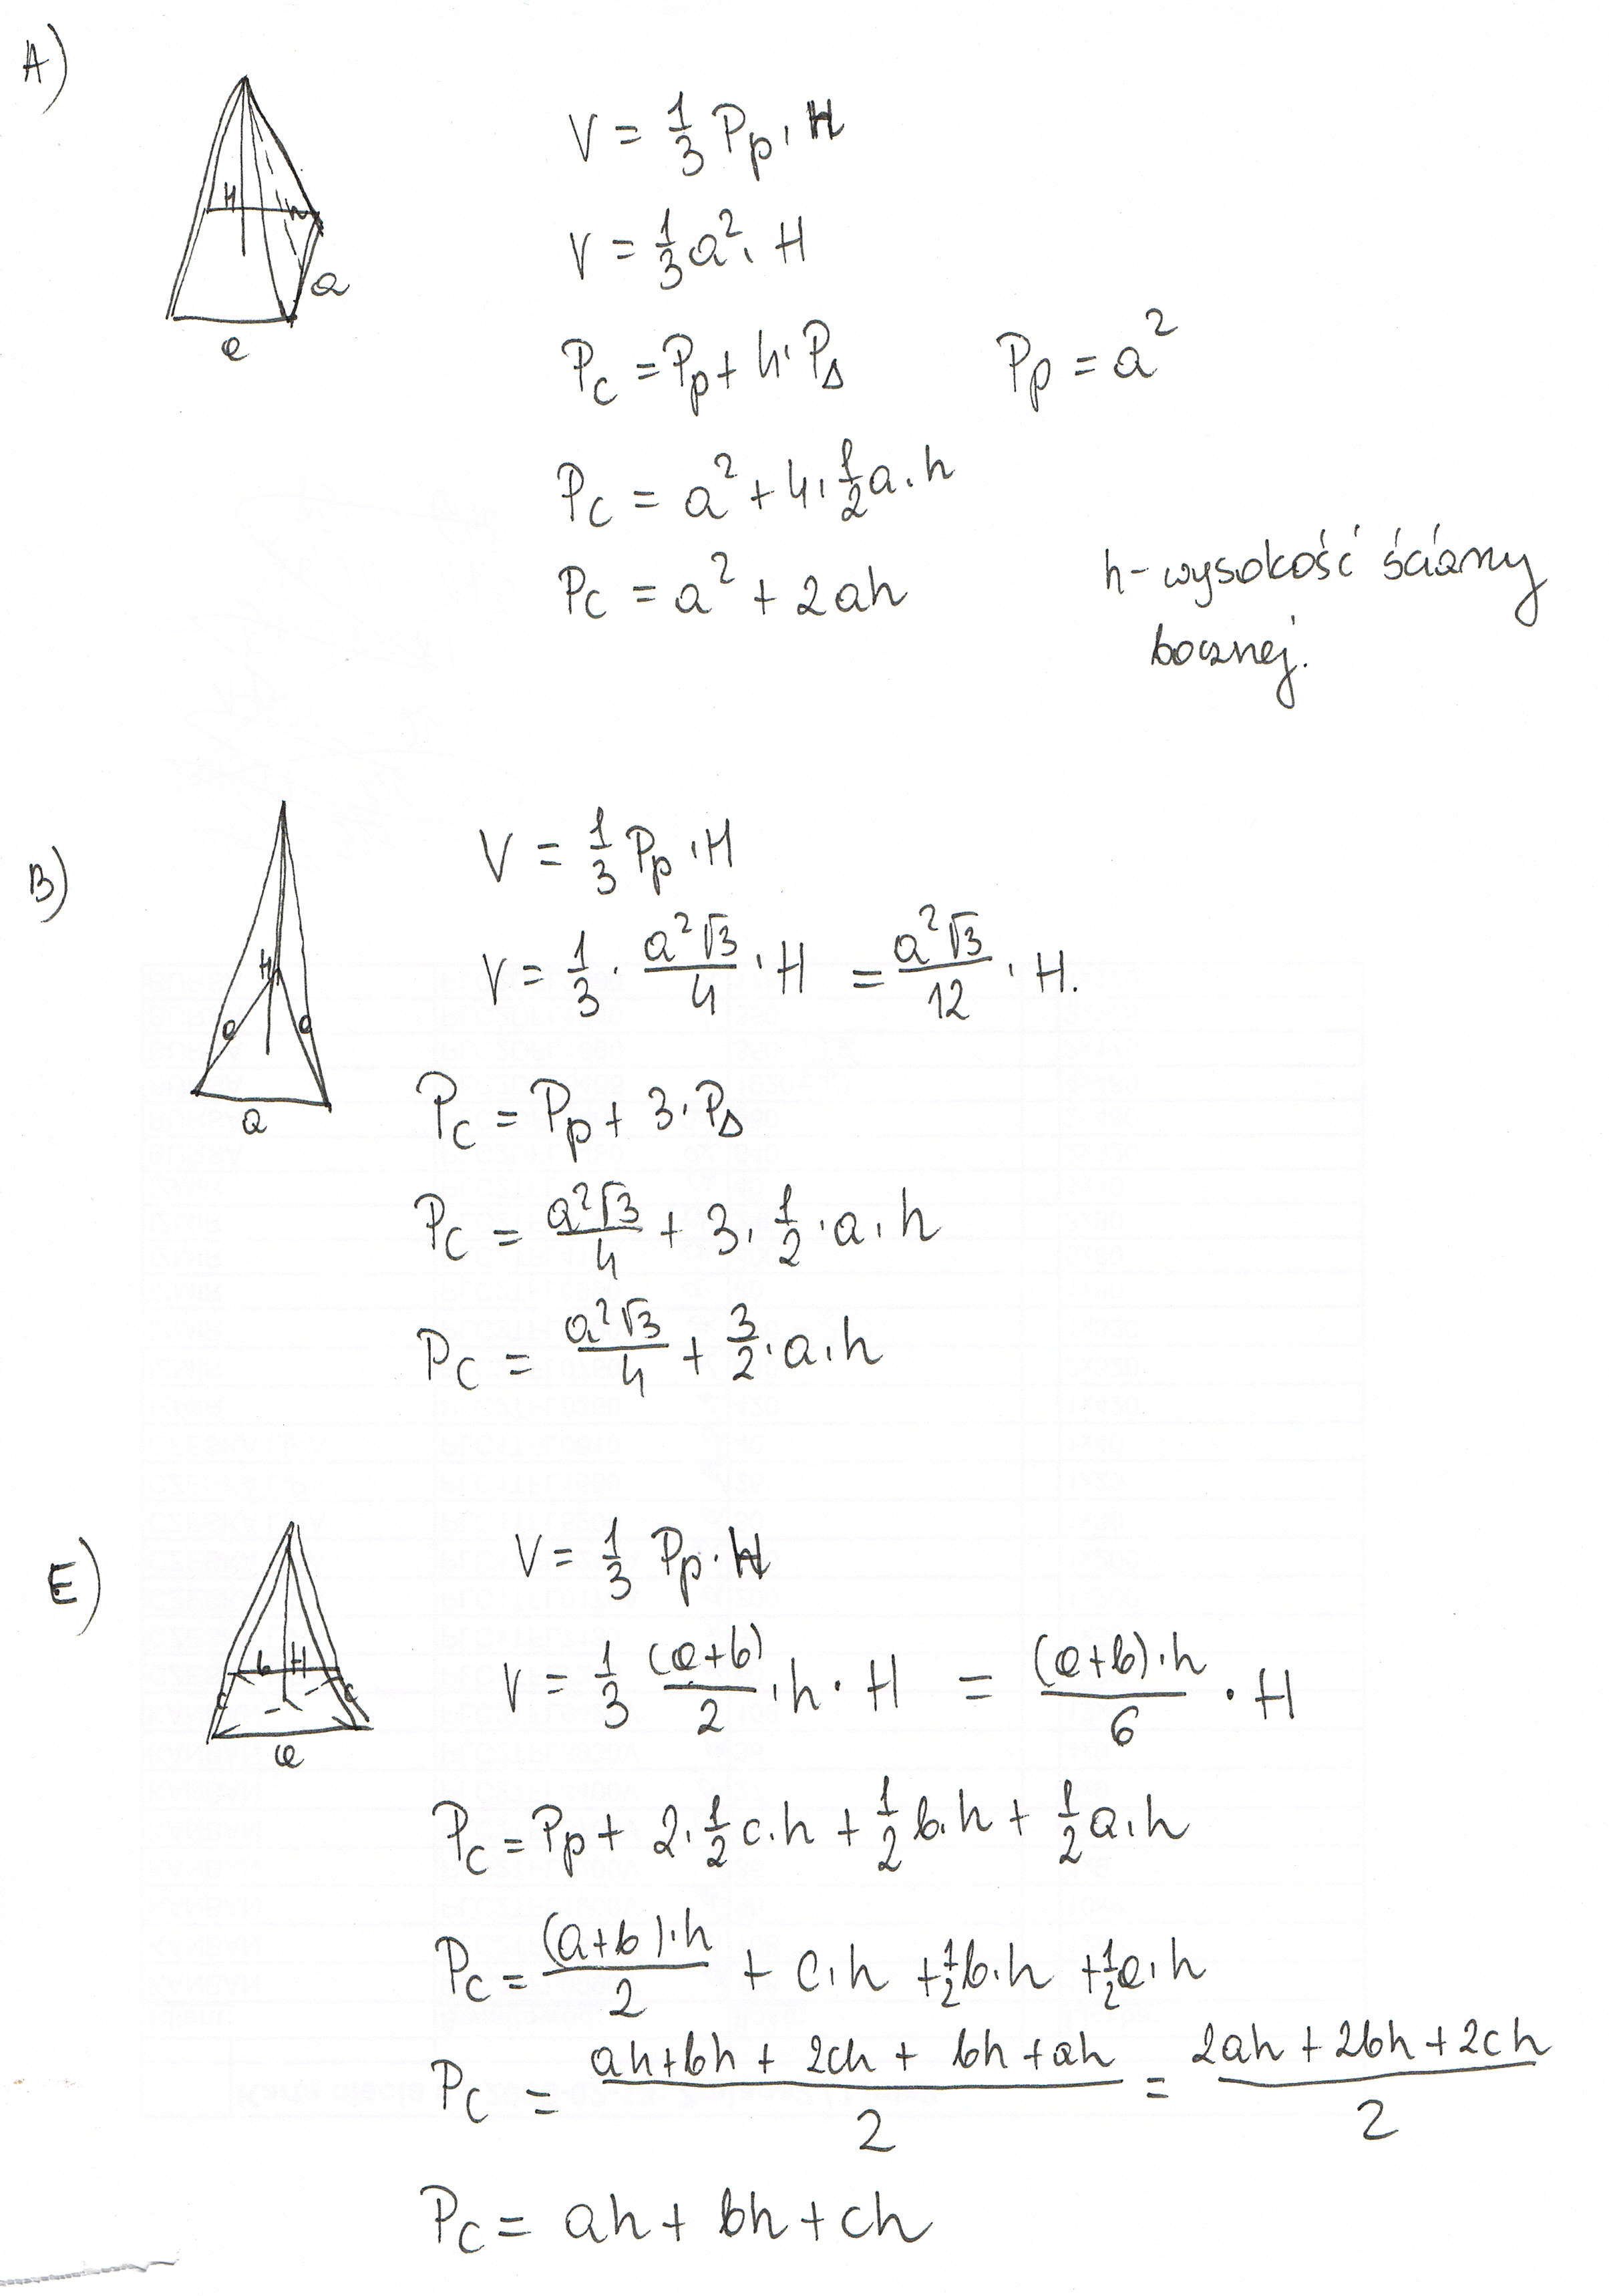 A)
V = 1/3 Pp · H
V = 1/3 a² · H
Pc = Pp + 4 · P△
Pp = a²
Pc = a² + 4 · 1/2 a · h
Pc = a² + 2ah
h - wysokość ściany
bocznej.
H
h
a
a
B)
V = 1/3 Pp · H
V = 1/3 · a²√3/4 · H = a²√3/12 · H.
Pc = Pp + 3 · P△
Pc = a²√3/4 + 3 · 1/2 · a · h
Pc = a²√3/4 + 3/2 · a · h
H
a
a
a
E)
V = 1/3 Pp · H
V = 1/3 (a+b)/2 · h · H = (a+b)·h/6 · H
Pc = Pp + 2 · 1/2 c · h + 1/2 b · h + 1/2 a · h
Pc = (a+b)·h/2 + c · h + 1/2 b · h + 1/2 a · h
Pc = ah+bh + 2ch + bh + ah/2 = 2ah + 2bh + 2ch/2
Pc = ah + bh + ch
b
H
c
c
a